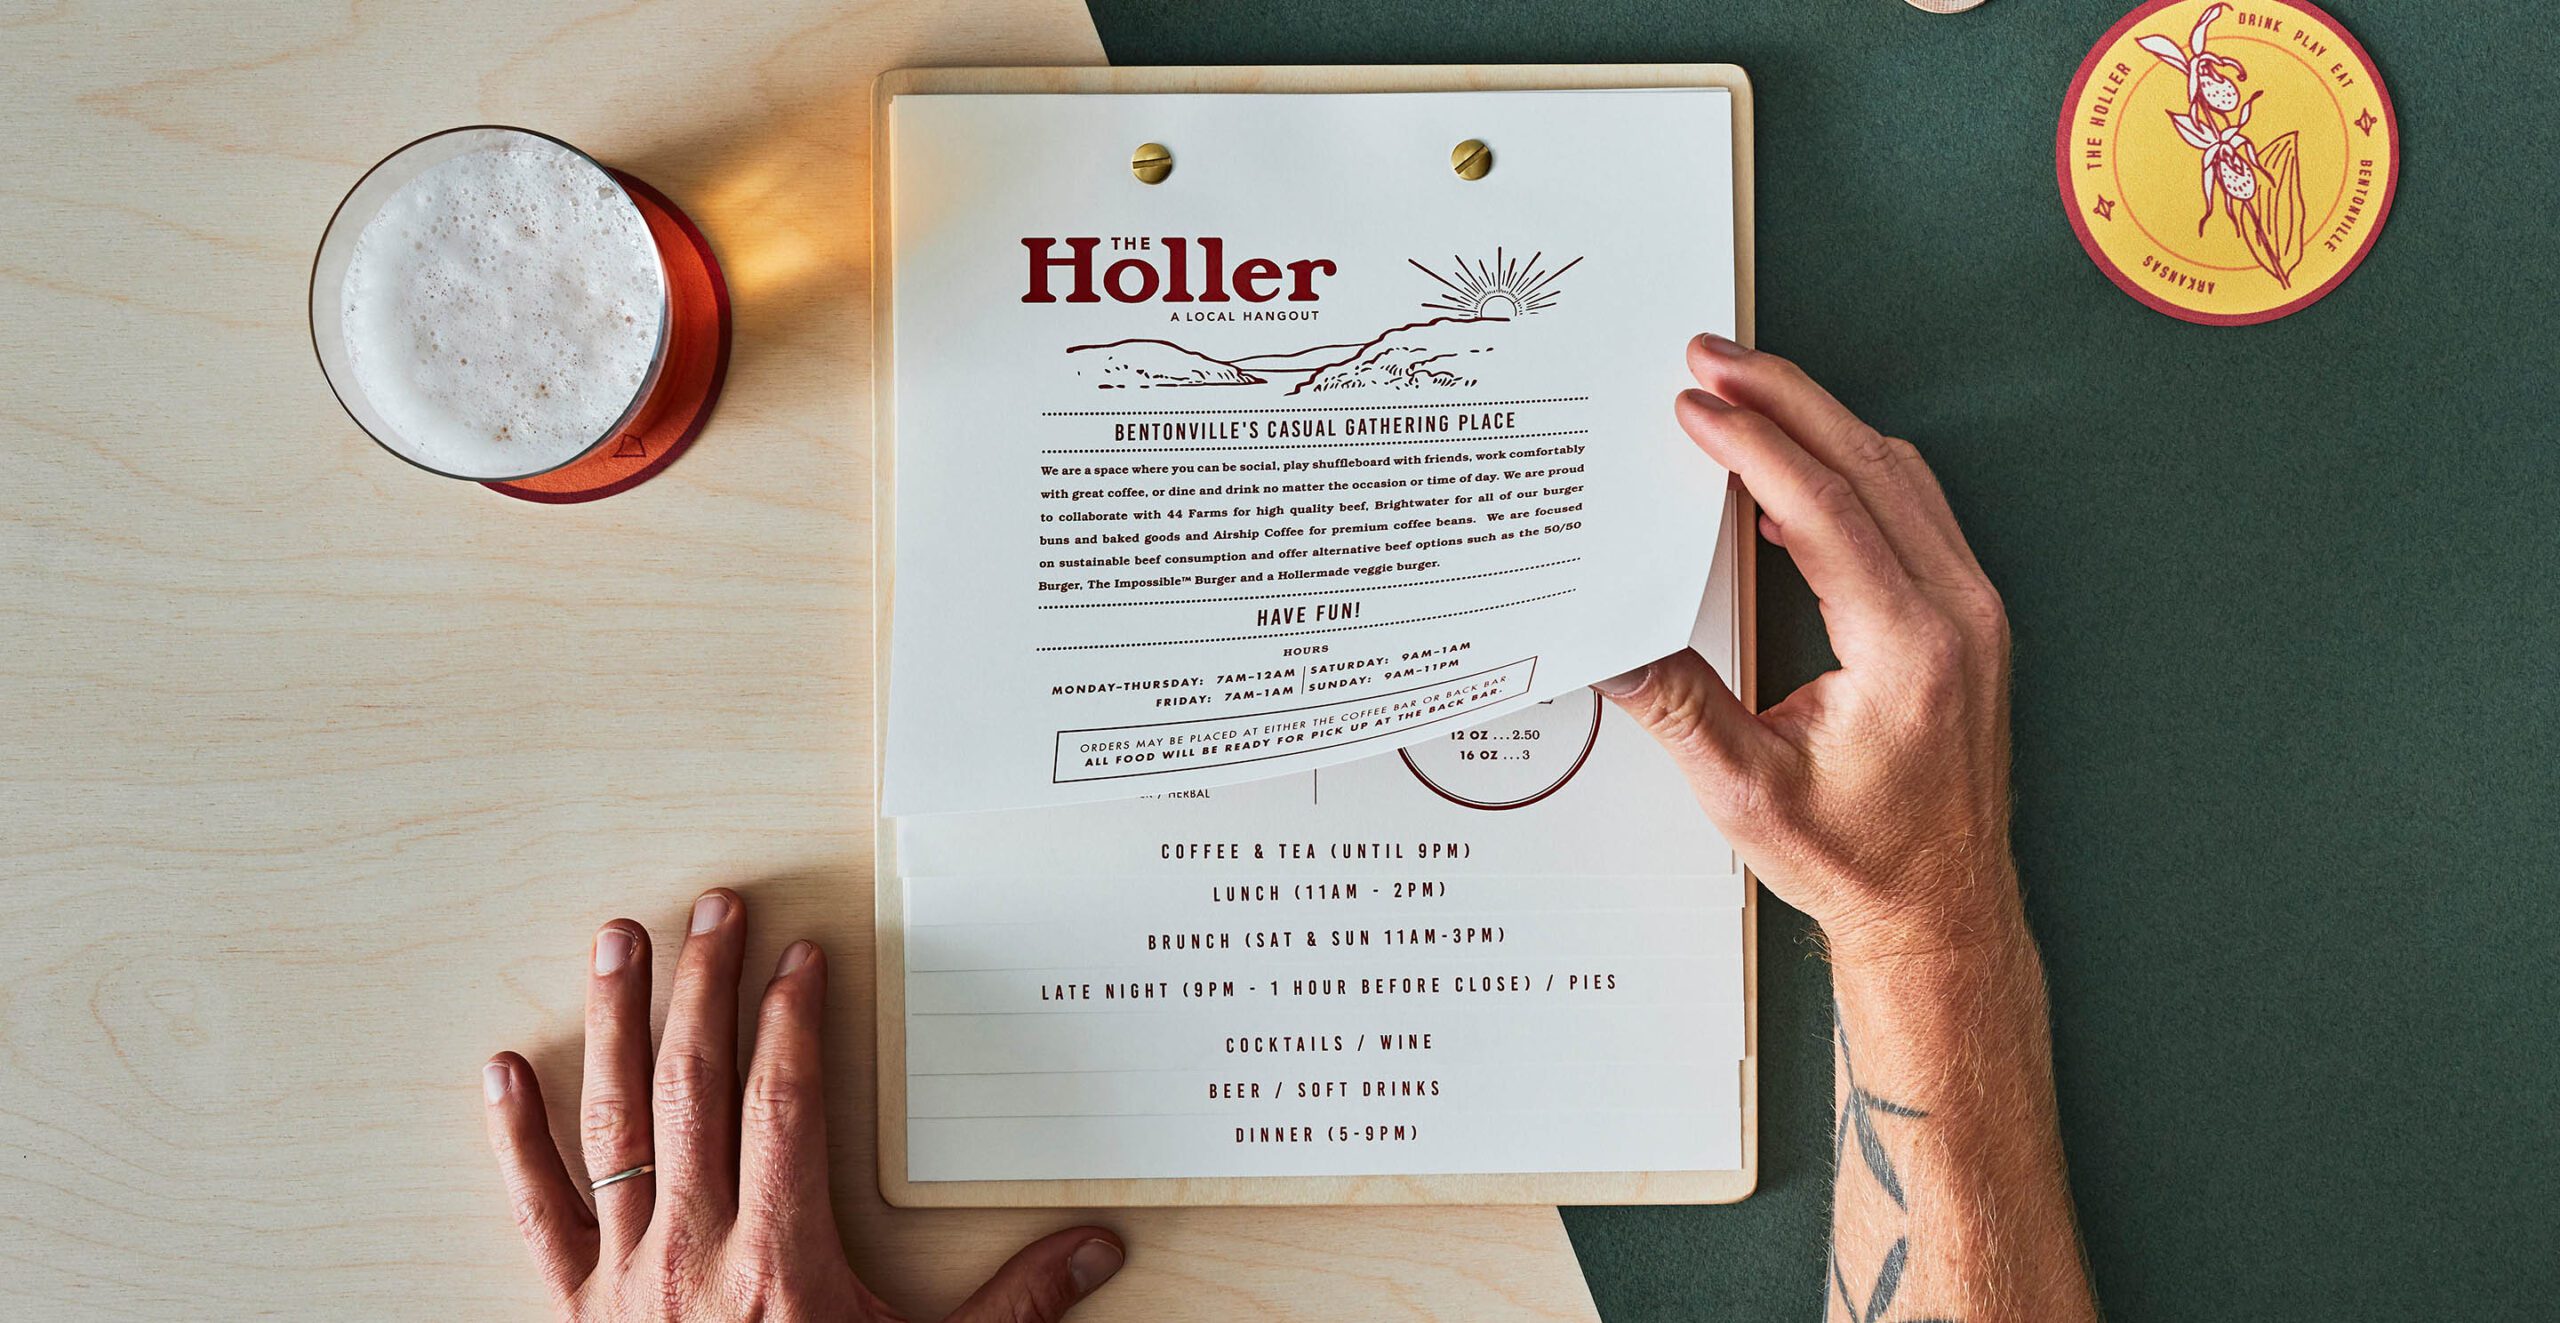 THE
Holler
A LOCAL HANGOUT
BENTONVILLE'S CASUAL GATHERING PLACE
We are a space where you can be social, play shuffleboard with friends, work comfortably
with great coffee, or dine and drink no matter the occasion or time of day. We are proud
to collaborate with 44 Farms for high quality beef, Brightwater for all of our burger
buns and baked goods and Airship Coffee for premium coffee beans. We are focused
on sustainable beef consumption and offer alternative beef options such as the 50/50
Burger, The Impossible™ Burger and a Hollermade veggie burger.
HAVE FUN!
HOURS
MONDAY–THURSDAY: 7AM–12AM | SATURDAY: 9AM–1AM
FRIDAY: 7AM–1AM | SUNDAY: 9AM–11PM
ORDERS MAY BE PLACED AT EITHER THE COFFEE BAR OR BACK BAR
ALL FOOD WILL BE READY FOR PICK UP AT THE BACK BAR.
12 OZ ...2.50
16 OZ ...3
/ HERBAL
COFFEE & TEA (UNTIL 9PM)
LUNCH (11AM - 2PM)
BRUNCH (SAT & SUN 11AM-3PM)
LATE NIGHT (9PM - 1 HOUR BEFORE CLOSE) / PIES
COCKTAILS / WINE
BEER / SOFT DRINKS
DINNER (5-9PM)
THE HOLLER
DRINK PLAY EAT
BENTONVILLE
ARKANSAS